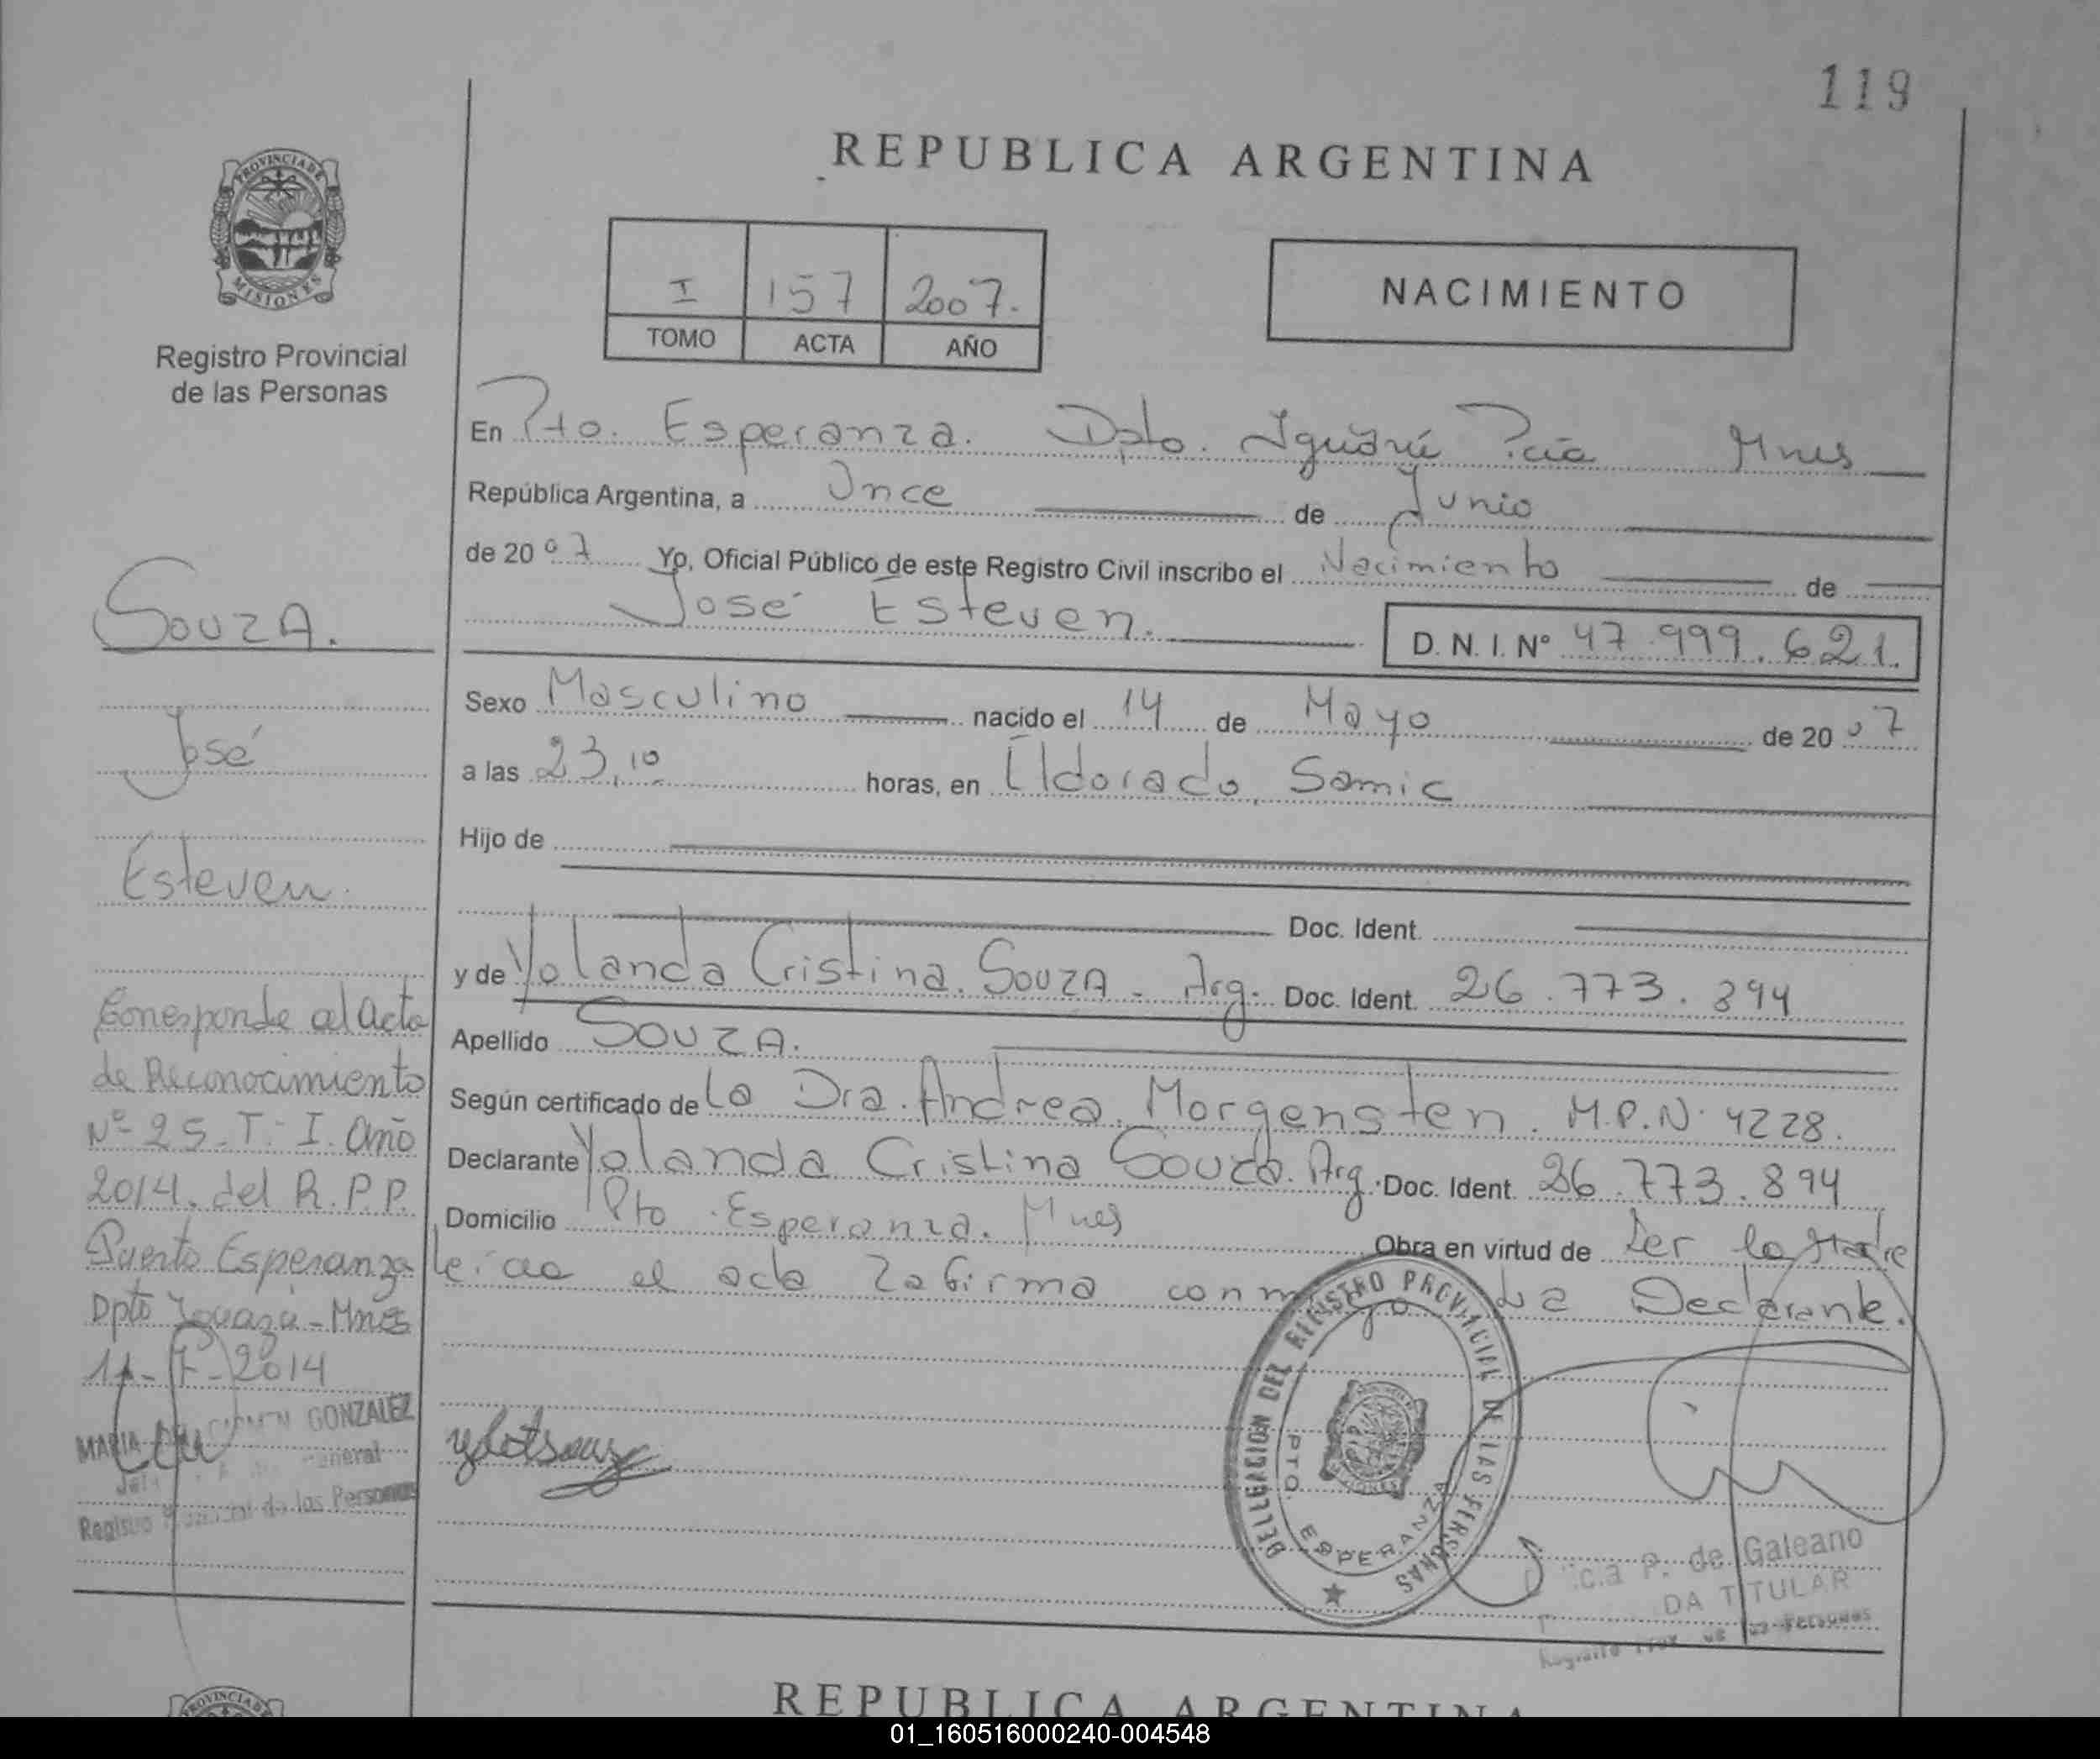 119
REPUBLICA ARGENTINA
PROVINCIA DE
MISIONES
Registro Provincial
de las Personas
I 157 2007.
TOMO ACTA AÑO
NACIMIENTO
En Pto. Esperanza. Dpto. Iguazú Pcia Mnes
República Argentina, a Once de Junio
de 2007 Yo, Oficial Público de este Registro Civil inscribo el Nacimiento de
José Esteven.
D. N. I. Nº 47.999.621.
Sexo Masculino nacido el 14 de Mayo de 2007
a las 23,10 horas, en Eldorado, Samic
Hijo de
Doc. Ident.
y de Yolanda Cristina. Souza - Arg. Doc. Ident. 26.773.894
Apellido Souza.
Según certificado de la Dra. Andrea. Morgensten. M.P.N. 4228.
Declarante Yolanda Cristina Souza. Arg. Doc. Ident. 26.773.894
Domicilio Pto. Esperanza. Mnes Obra en virtud de Ser la Madre
leida el acta la firma conmigo La Declarante.
SOUZA.
José
Esteven.
Corresponde al acta
de Reconocimiento
Nº 25-T-I. Año
2014. del R.P.P.
Puerto Esperanza
Dpto Iguazú - Mnes
11-7-2014
MARIA GONZALEZ
General
Registro Provincial de las Personas
DELEGACION DEL REGISTRO PROVINCIAL DE LAS PERSONAS
PTO. ESPERANZA
P. de Galeano
TITULAR
Personas
REPUBLICA ARGENTINA
PROVINCIA DE
01_160516000240-004548